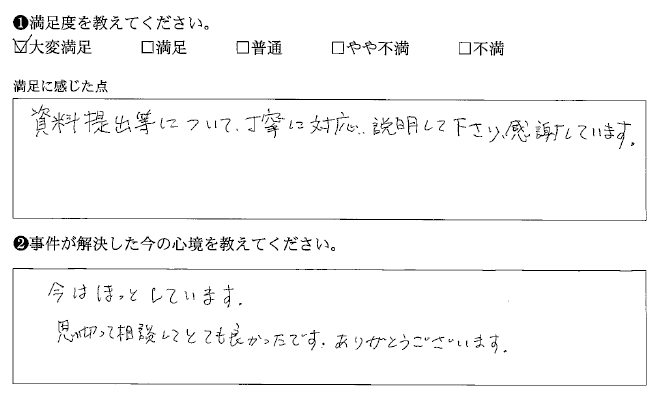 ❶満足度を教えてください。
☑大変満足 □満足 □普通 □やや不満 □不満
満足に感じた点
資料提出等について、丁寧に対応、説明して下さり、感謝しています。
❷事件が解決した今の心境を教えてください。
今はほっとしています。
思い切って相談してとても良かったです。ありがとうございます。